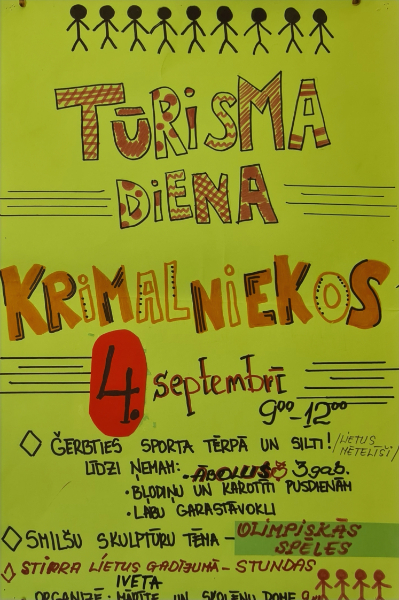 TŪRISMA
DIENA
KRIMALNIEKOS
4. septembrī
9⁰⁰-12⁰⁰
ĢĒRBTIES SPORTA TĒRPĀ UN SILTI! /LIETUS
MĒTELĪŠI/
LĪDZI ŅEMAM: • ĀBOLUS 3 gab.
• BĻODIŅU UN KAROTĪTI PUSDIENĀM
• LABU GARASTĀVOKLI
SMILŠU SKULPTŪRU TĒMA - OLIMPISKĀS
SPĒLES
STIPRA LIETUS GADĪJUMĀ - STUNDAS
IVETA
ORGANIZĒ: UN SKOLĒNU DOME